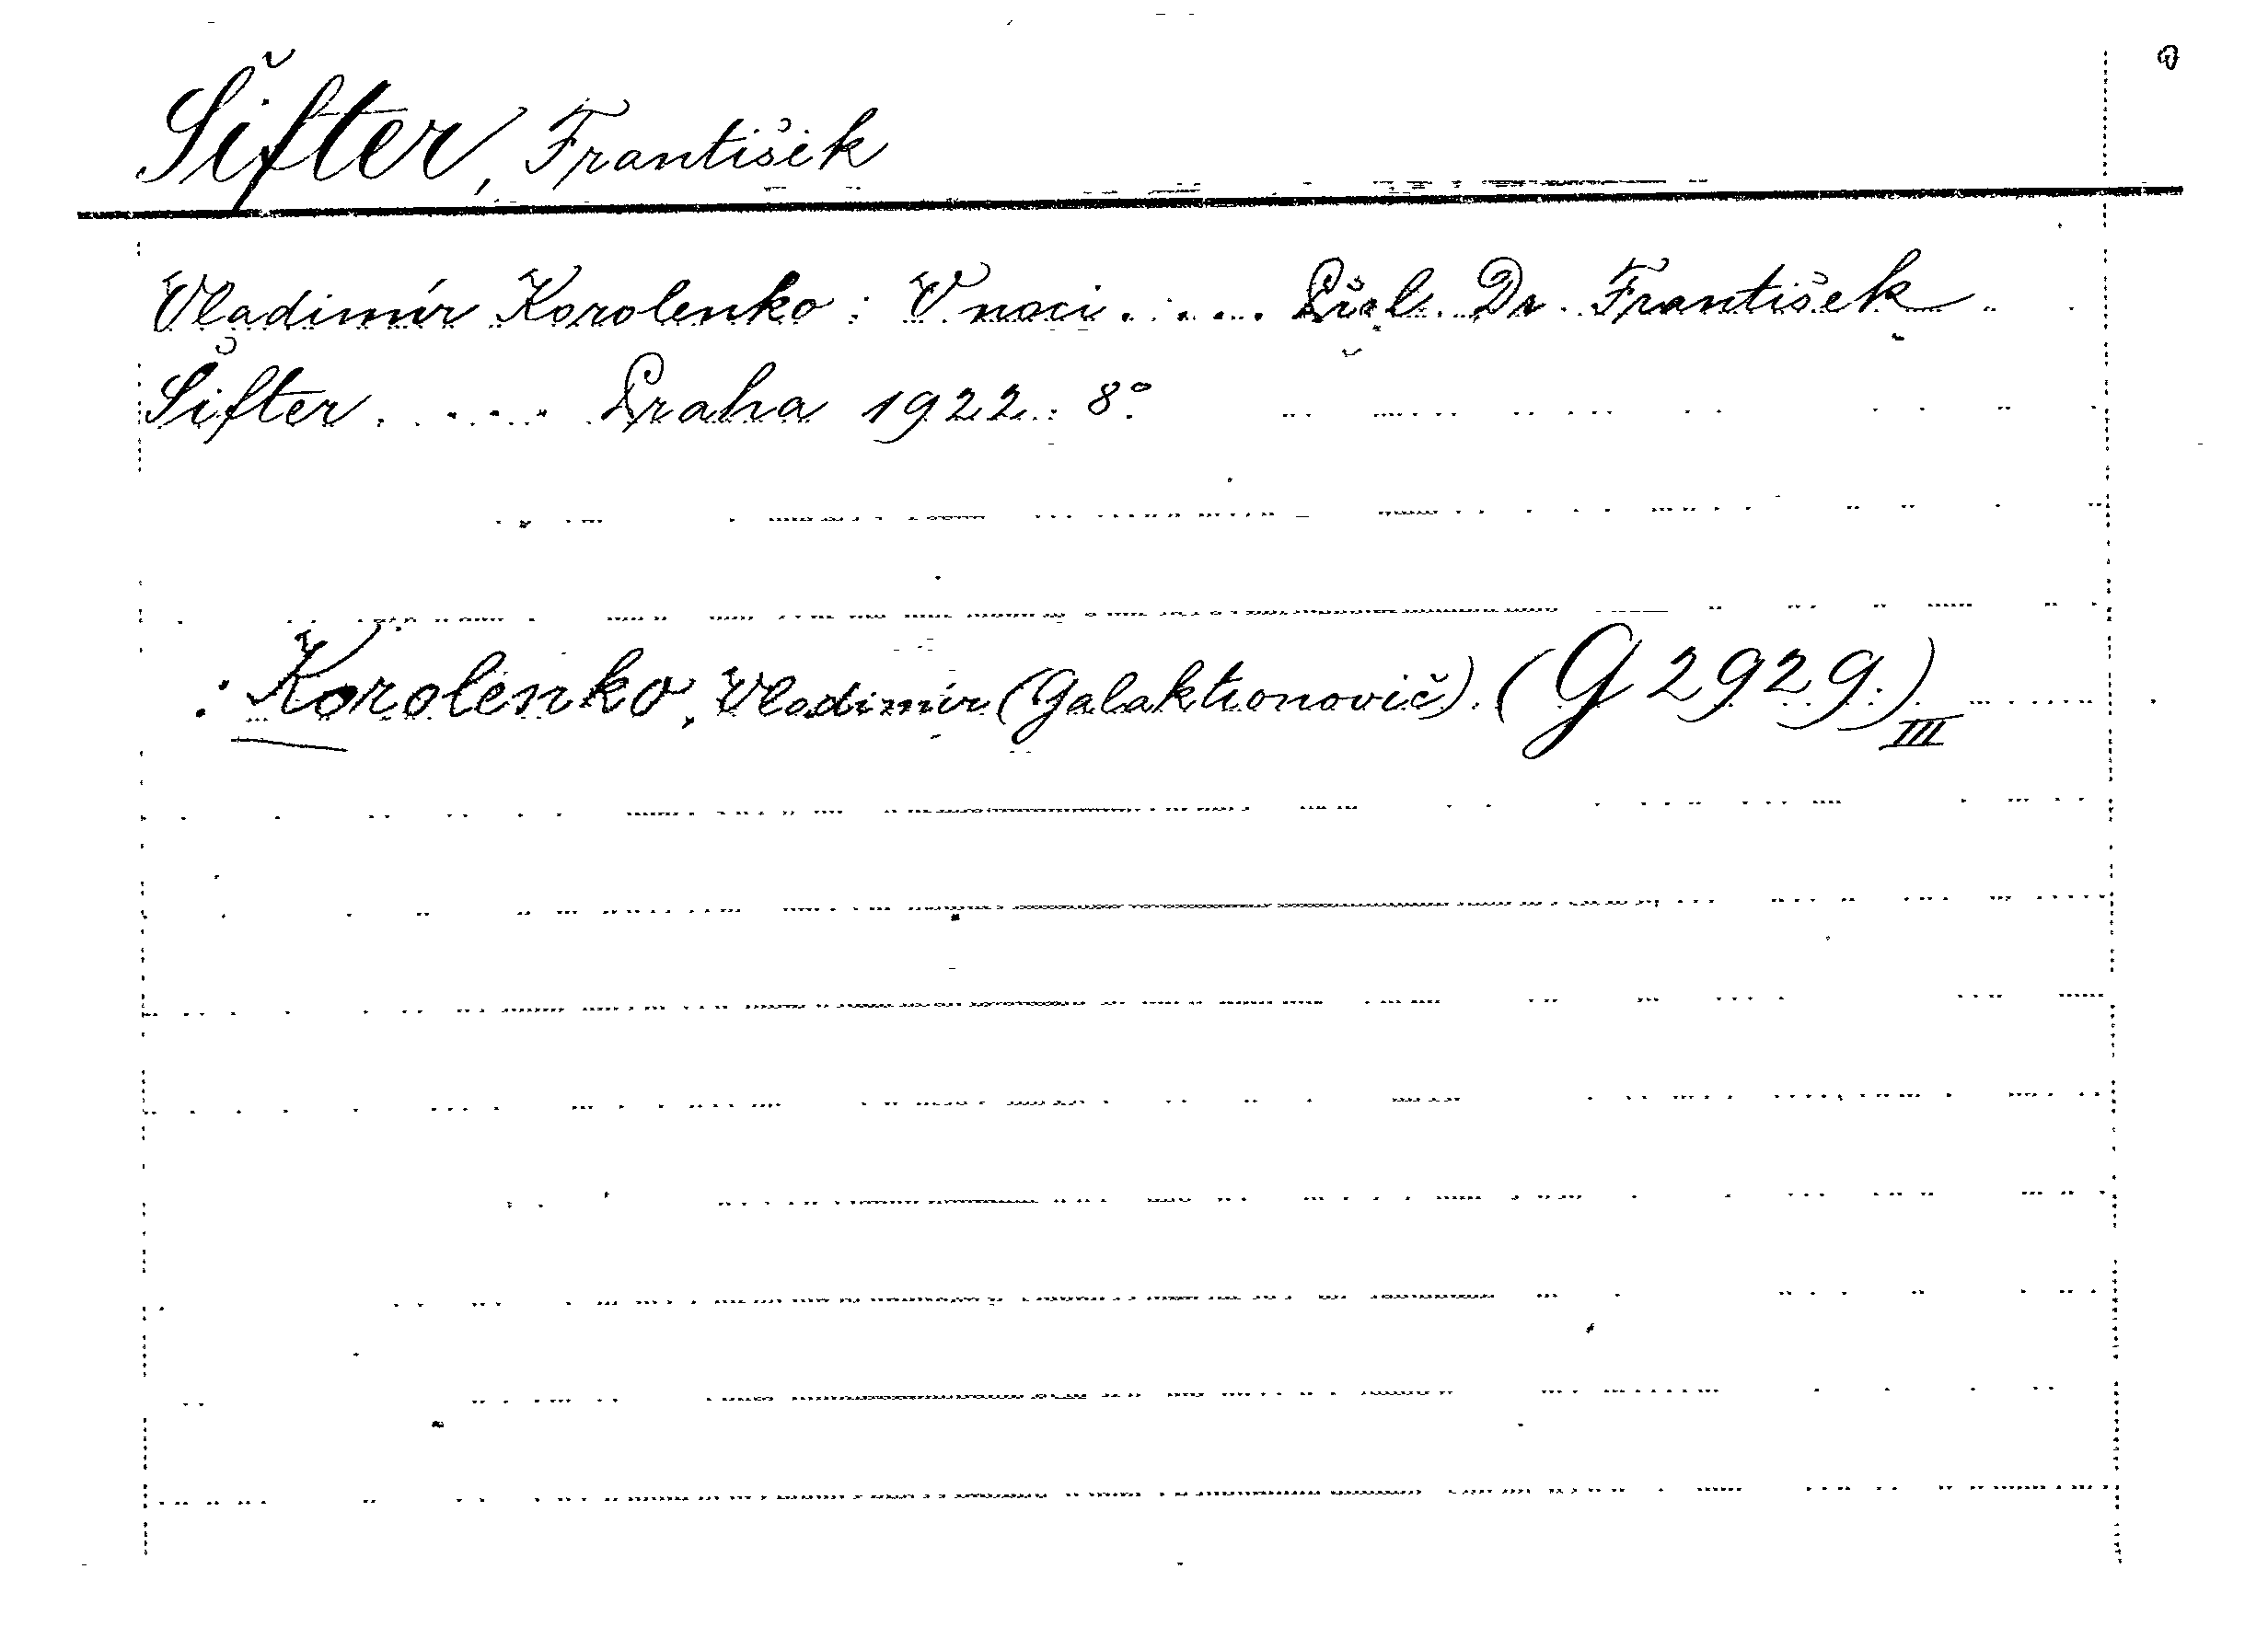 Šifter, František
Vladimír Korolenko: V noci..... Přel. Dr. František
Šifter..... Praha 1922. 8°.
: Korolenko, Vladimír (Galaktionovič). (G 2929.) III